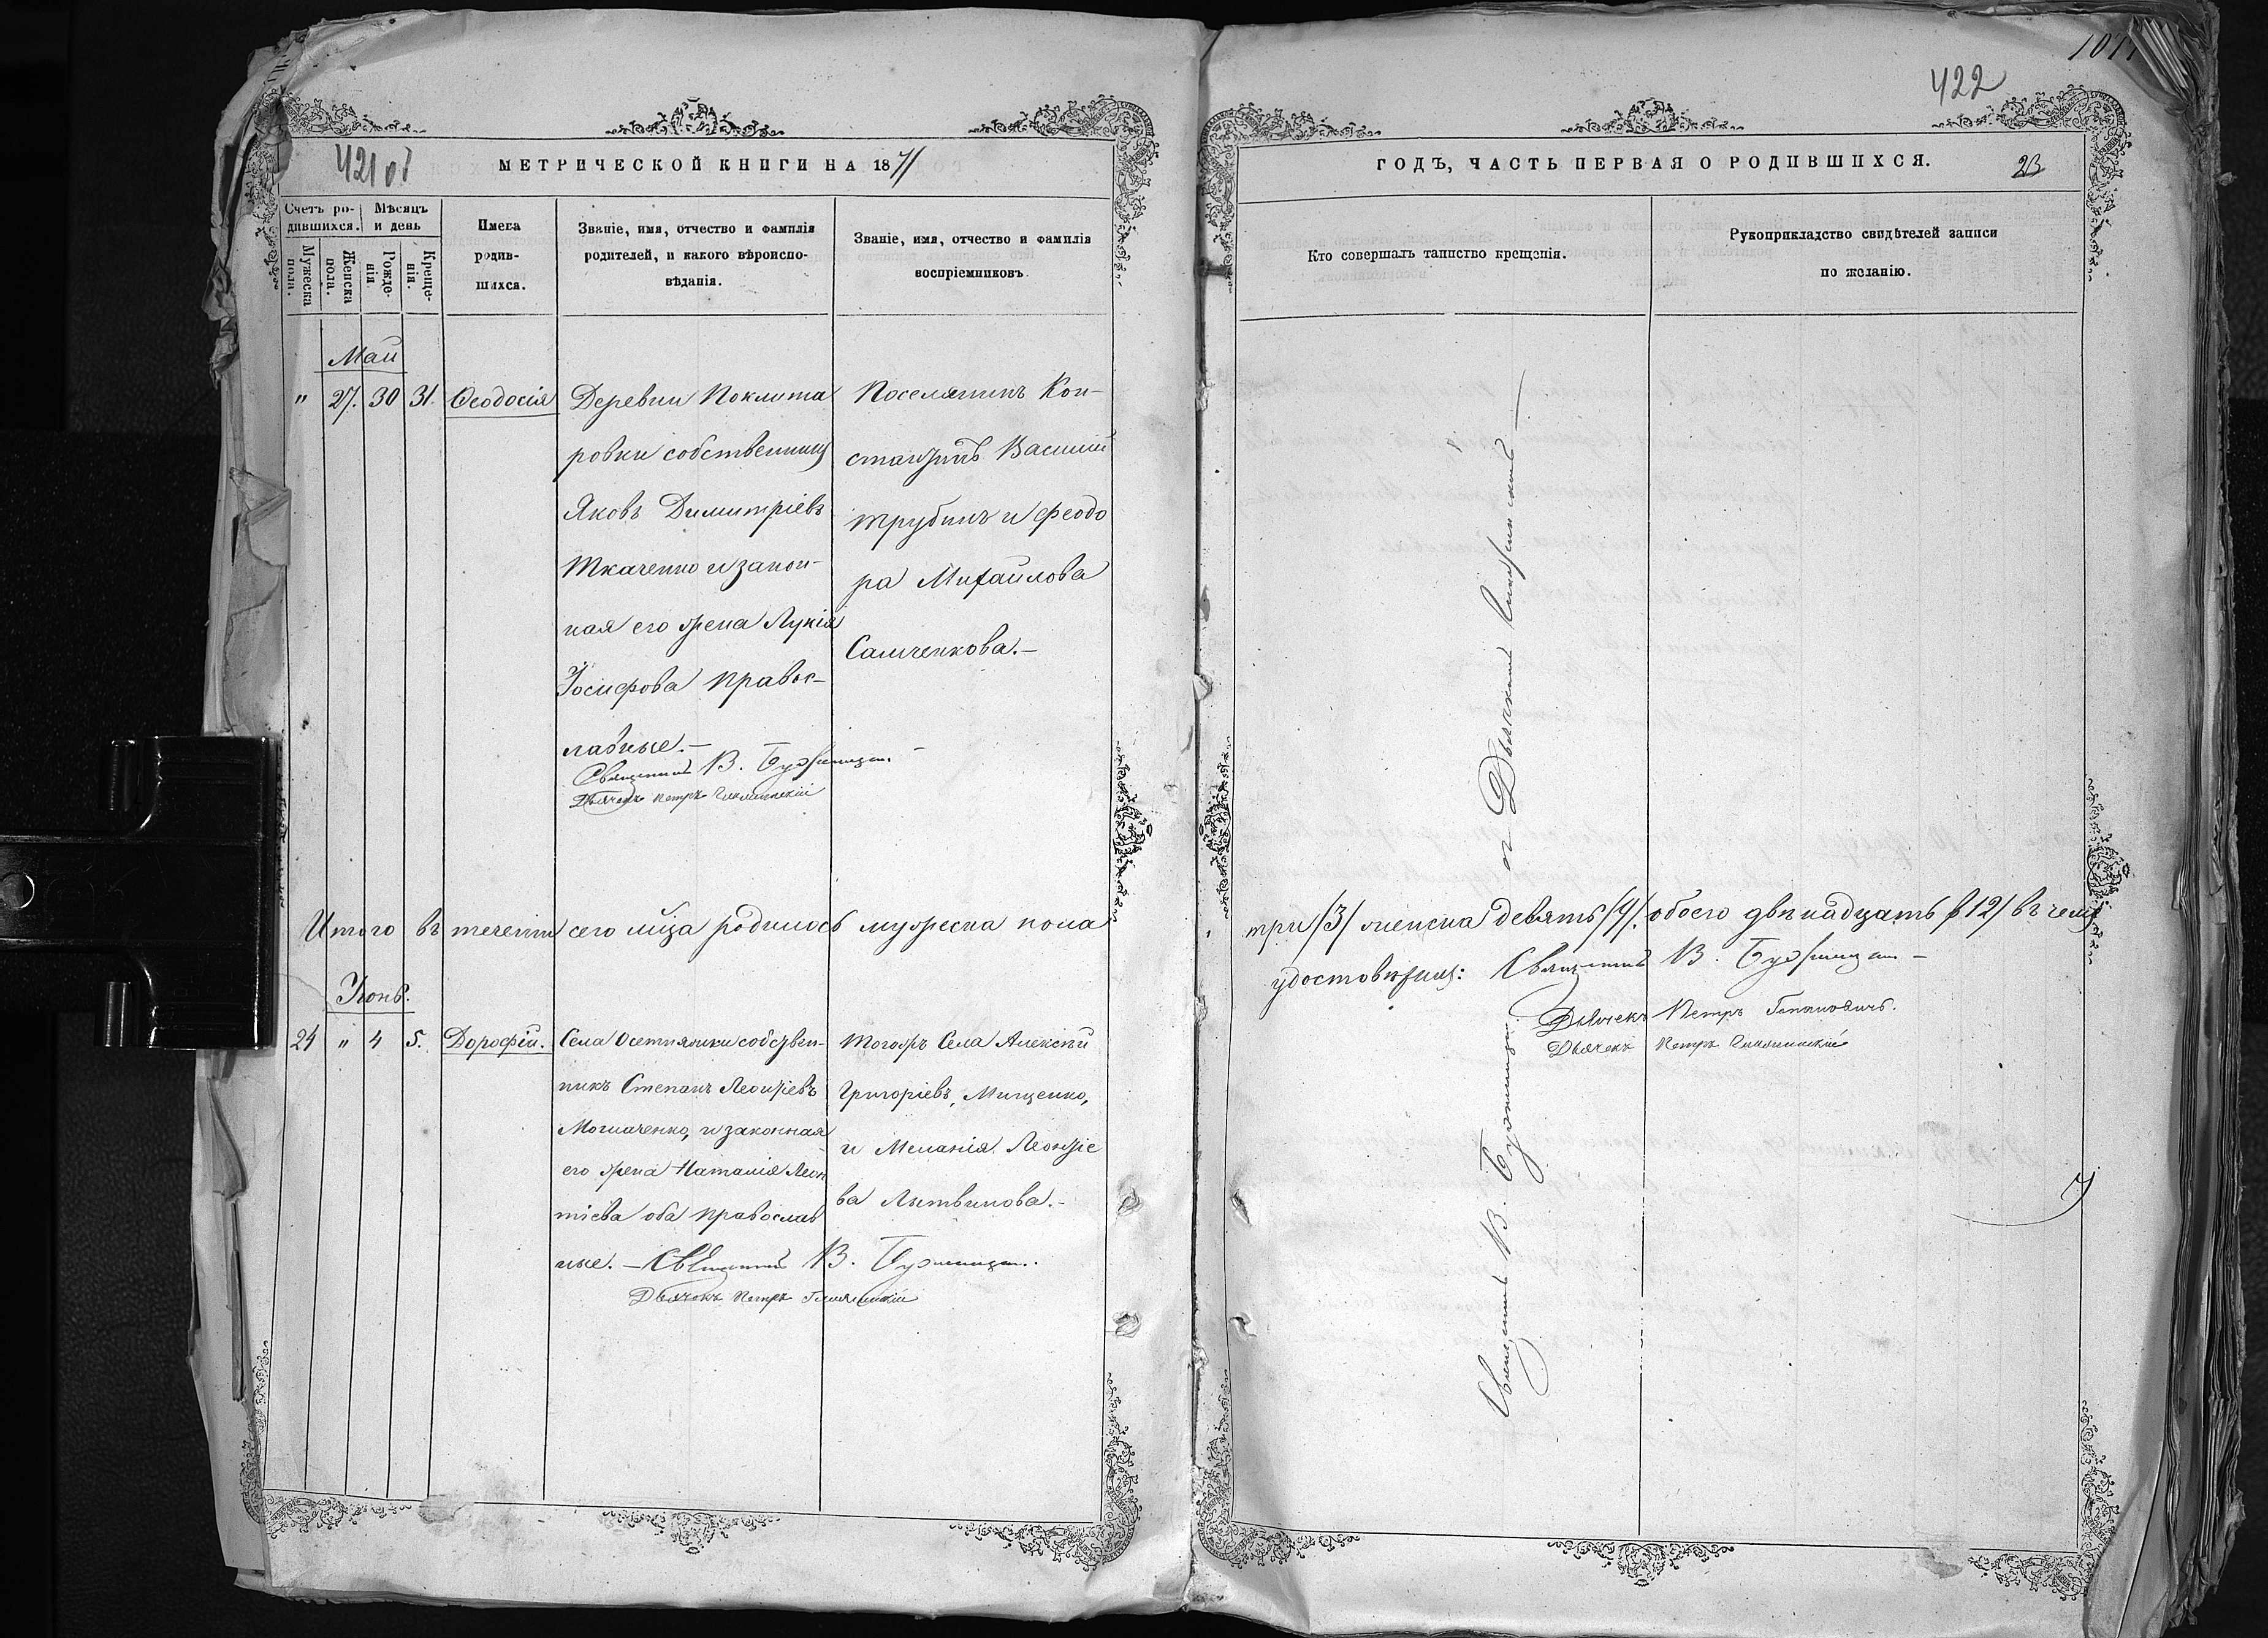 421 об
МЕТРИЧЕСКОЙ КНИГИ НА 1871
Счетъ ро-
дившихся.
Мѣсяцъ
и день
Мужеска
пола.
Женска
пола.
Рожде-
нія
Креще-
нія.
Имена
родив-
шихся.
Званіе, имя, отчество и фамилія
родителей, и какого вѣроиспо-
вѣданія.
Званіе, имя, отчество и фамилія
воспріемниковъ.
Май
" 27. 30 31. Ѳеодосія
Деревни Поклита
ровки собственникъ
Яковъ Димитріевъ
Ткаченко и закон-
ная его жена Лукія
Іосифова правос-
лавные.–
Священникъ В.
Дьячекъ Петръ
Поселянинъ Кон-
стантинъ Василій
Трубинъ и Феодо
ра Михайлова
Самченкова.–
Итого въ теченіи сего мѣца родилось мужеска пола
Іюнь.
24 " 4 5. Дорофей.
Села Осетняжки собствен-
никъ Степанъ Леонтіевъ
и законная
его жена Наталія Леон
тіева оба православ
ные. – Священникъ В.
Дьячокъ Петръ
Тогожъ Села Алексѣй
Григоріевъ, Мищенко,
и Меланія Леонтіе
ва Литвинова.–
1071
422
ГОДЪ, ЧАСТЬ ПЕРВАЯ О РОДИВШИХСЯ.
23
Кто совершалъ таинство крещенія.
Рукоприкладство свидѣтелей записи
по желанію.
Священникъ В. и Дьячекъ
три /3/ женска девять /9/. обоего двѣнадцать /12/ въ чемъ
удостовѣряемъ: Священникъ В.
Дьячекъ Петръ
Дьячекъ Петръ